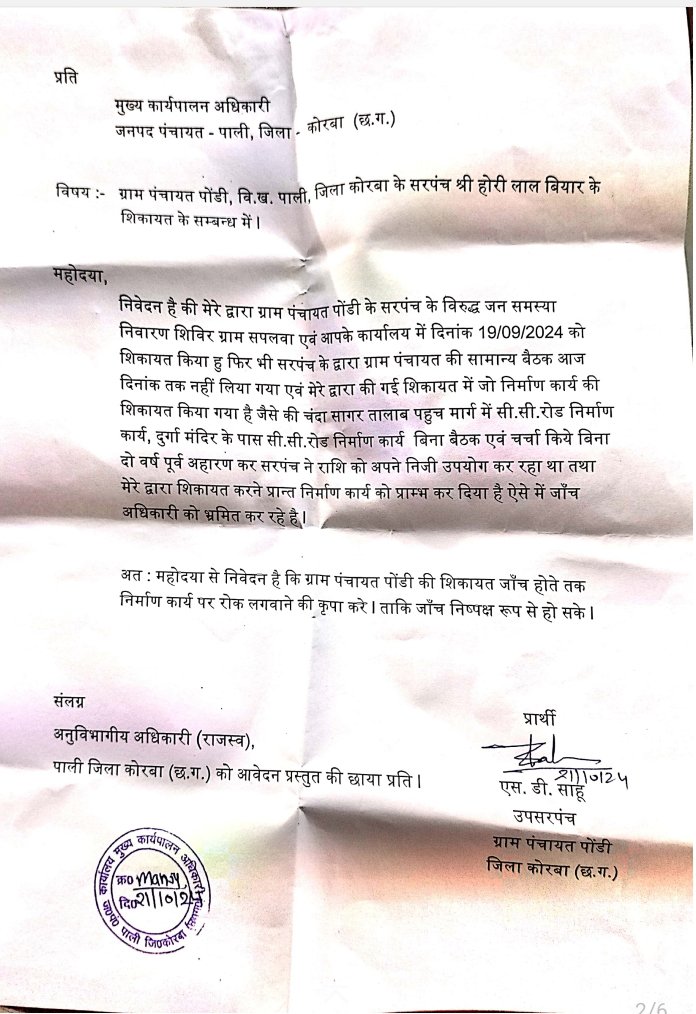 प्रति
मुख्य कार्यपालन अधिकारी
जनपद पंचायत - पाली, जिला - कोरबा (छ.ग.)
विषय :- ग्राम पंचायत पोंडी, वि.ख. पाली, जिला कोरबा के सरपंच श्री होरी लाल बियार के
शिकायत के सम्बन्ध में।
महोदया,
निवेदन है की मेरे द्वारा ग्राम पंचायत पोंडी के सरपंच के विरुद्ध जन समस्या
निवारण शिविर ग्राम सपलवा एवं आपके कार्यालय में दिनांक 19/09/2024 को
शिकायत किया हु फिर भी सरपंच के द्वारा ग्राम पंचायत की सामान्य बैठक आज
दिनांक तक नहीं लिया गया एवं मेरे द्वारा की गई शिकायत में जो निर्माण कार्य की
शिकायत किया गया है जैसे की चंदा सागर तालाब पहुच मार्ग में सी.सी.रोड निर्माण
कार्य, दुर्गा मंदिर के पास सी.सी.रोड निर्माण कार्य बिना बैठक एवं चर्चा किये बिना
दो वर्ष पूर्व अहारण कर सरपंच ने राशि को अपने निजी उपयोग कर रहा था तथा
मेरे द्वारा शिकायत करने प्रान्त निर्माण कार्य को प्राम्भ कर दिया है ऐसे में जाँच
अधिकारी को भ्रमित कर रहे है।
अत : महोदया से निवेदन है कि ग्राम पंचायत पोंडी की शिकायत जाँच होते तक
निर्माण कार्य पर रोक लगवाने की कृपा करे। ताकि जाँच निष्पक्ष रूप से हो सके।
संलग्न
अनुविभागीय अधिकारी (राजस्व),
पाली जिला कोरबा (छ.ग.) को आवेदन प्रस्तुत की छाया प्रति।
प्रार्थी
21/10/24
एस. डी. साहू
उपसरपंच
ग्राम पंचायत पोंडी
जिला कोरबा (छ.ग.)
कार्यालय मुख्य कार्यपालन अधिकारी
क्र०
दि० 21/10/24
ज०पं० पाली जि०कोरबा
2/6